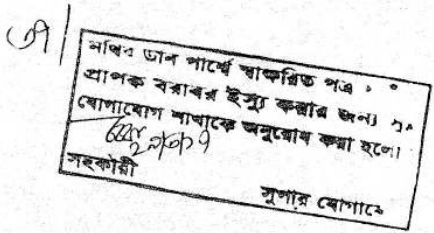 ৩
নথির ডান পার্শ্বে স্বাক্ষরিত পত্র
প্রাপক বরাবর ইস্যু করার জন্য
যোগাযোগ শাখাকে অনুরোধ করা হলো।
সহকারী
সুপার যোগাযোগ